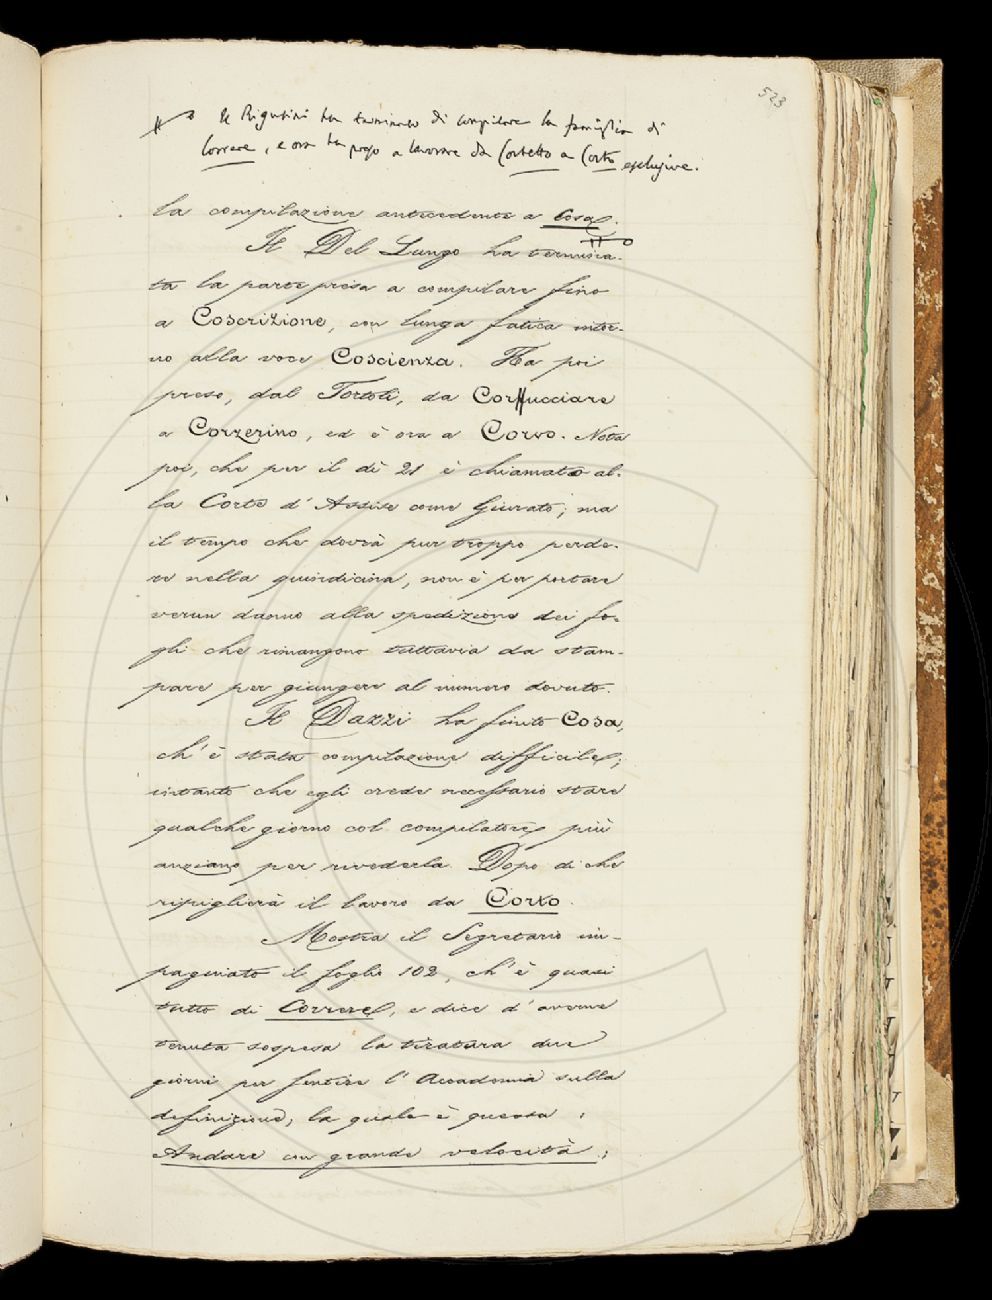 523
Il Rigutini ha terminato di compilare la famiglia di
Correre, e ora ha preso a lavorare da Corsetto a Corto esclusive.
la compilazione antecedente a Cosa.
Il Del Lungo ha termina-
ta la parte presa a compilare fino
a Coscrizione, con lunga fatica intor-
no alla voce Coscienza. Ha poi
preso, dal Tortoli, da Corrucciare
a Corzerino, ed è ora a Corvo. Nota
poi, che per il dì 21 è chiamato al-
la Corte d'Assise come Giurato; ma
il tempo che dovrà pur troppo perde-
re nella quindicina, non è per portare
verun danno alla spedizione dei fo-
gli che rimangono tuttavia da stam-
pare per giungere al numero dovuto.
Il Dazzi ha finito Cosa,
ch'è stata compilazione difficile;
intanto che egli crede necessario stare
qualche giorno col compilatore più
anziano per rivederla. Dopo di che
ripiglierà il lavoro da Corto.
Mostra il Segretario im-
paginato il foglio 102, ch'è quasi
tutto di Correre, e dice d'averne
tenuta sospesa la tiratura due
giorni per sentire l'Accademia sulla
definizione, la quale è questa:
Andare con grande velocità;